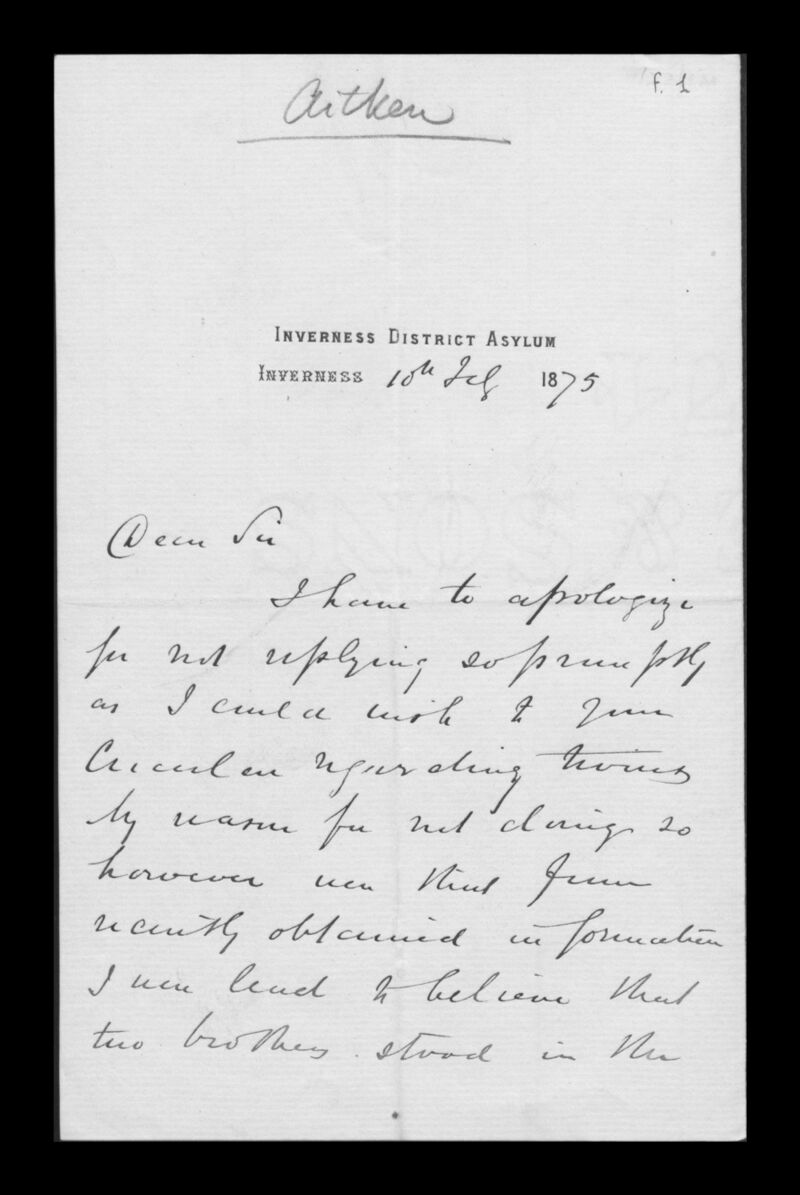 Aitken
f. 1
INVERNESS DISTRICT ASYLUM
INVERNESS 10th Feb 1875
Dear Sir
I have to apologize
for not replying so promptly
as I could wish to your
Circular regarding twins
My reason for not doing so
however was that from
recently obtained information
I was lead to believe that
two brothers stood in the